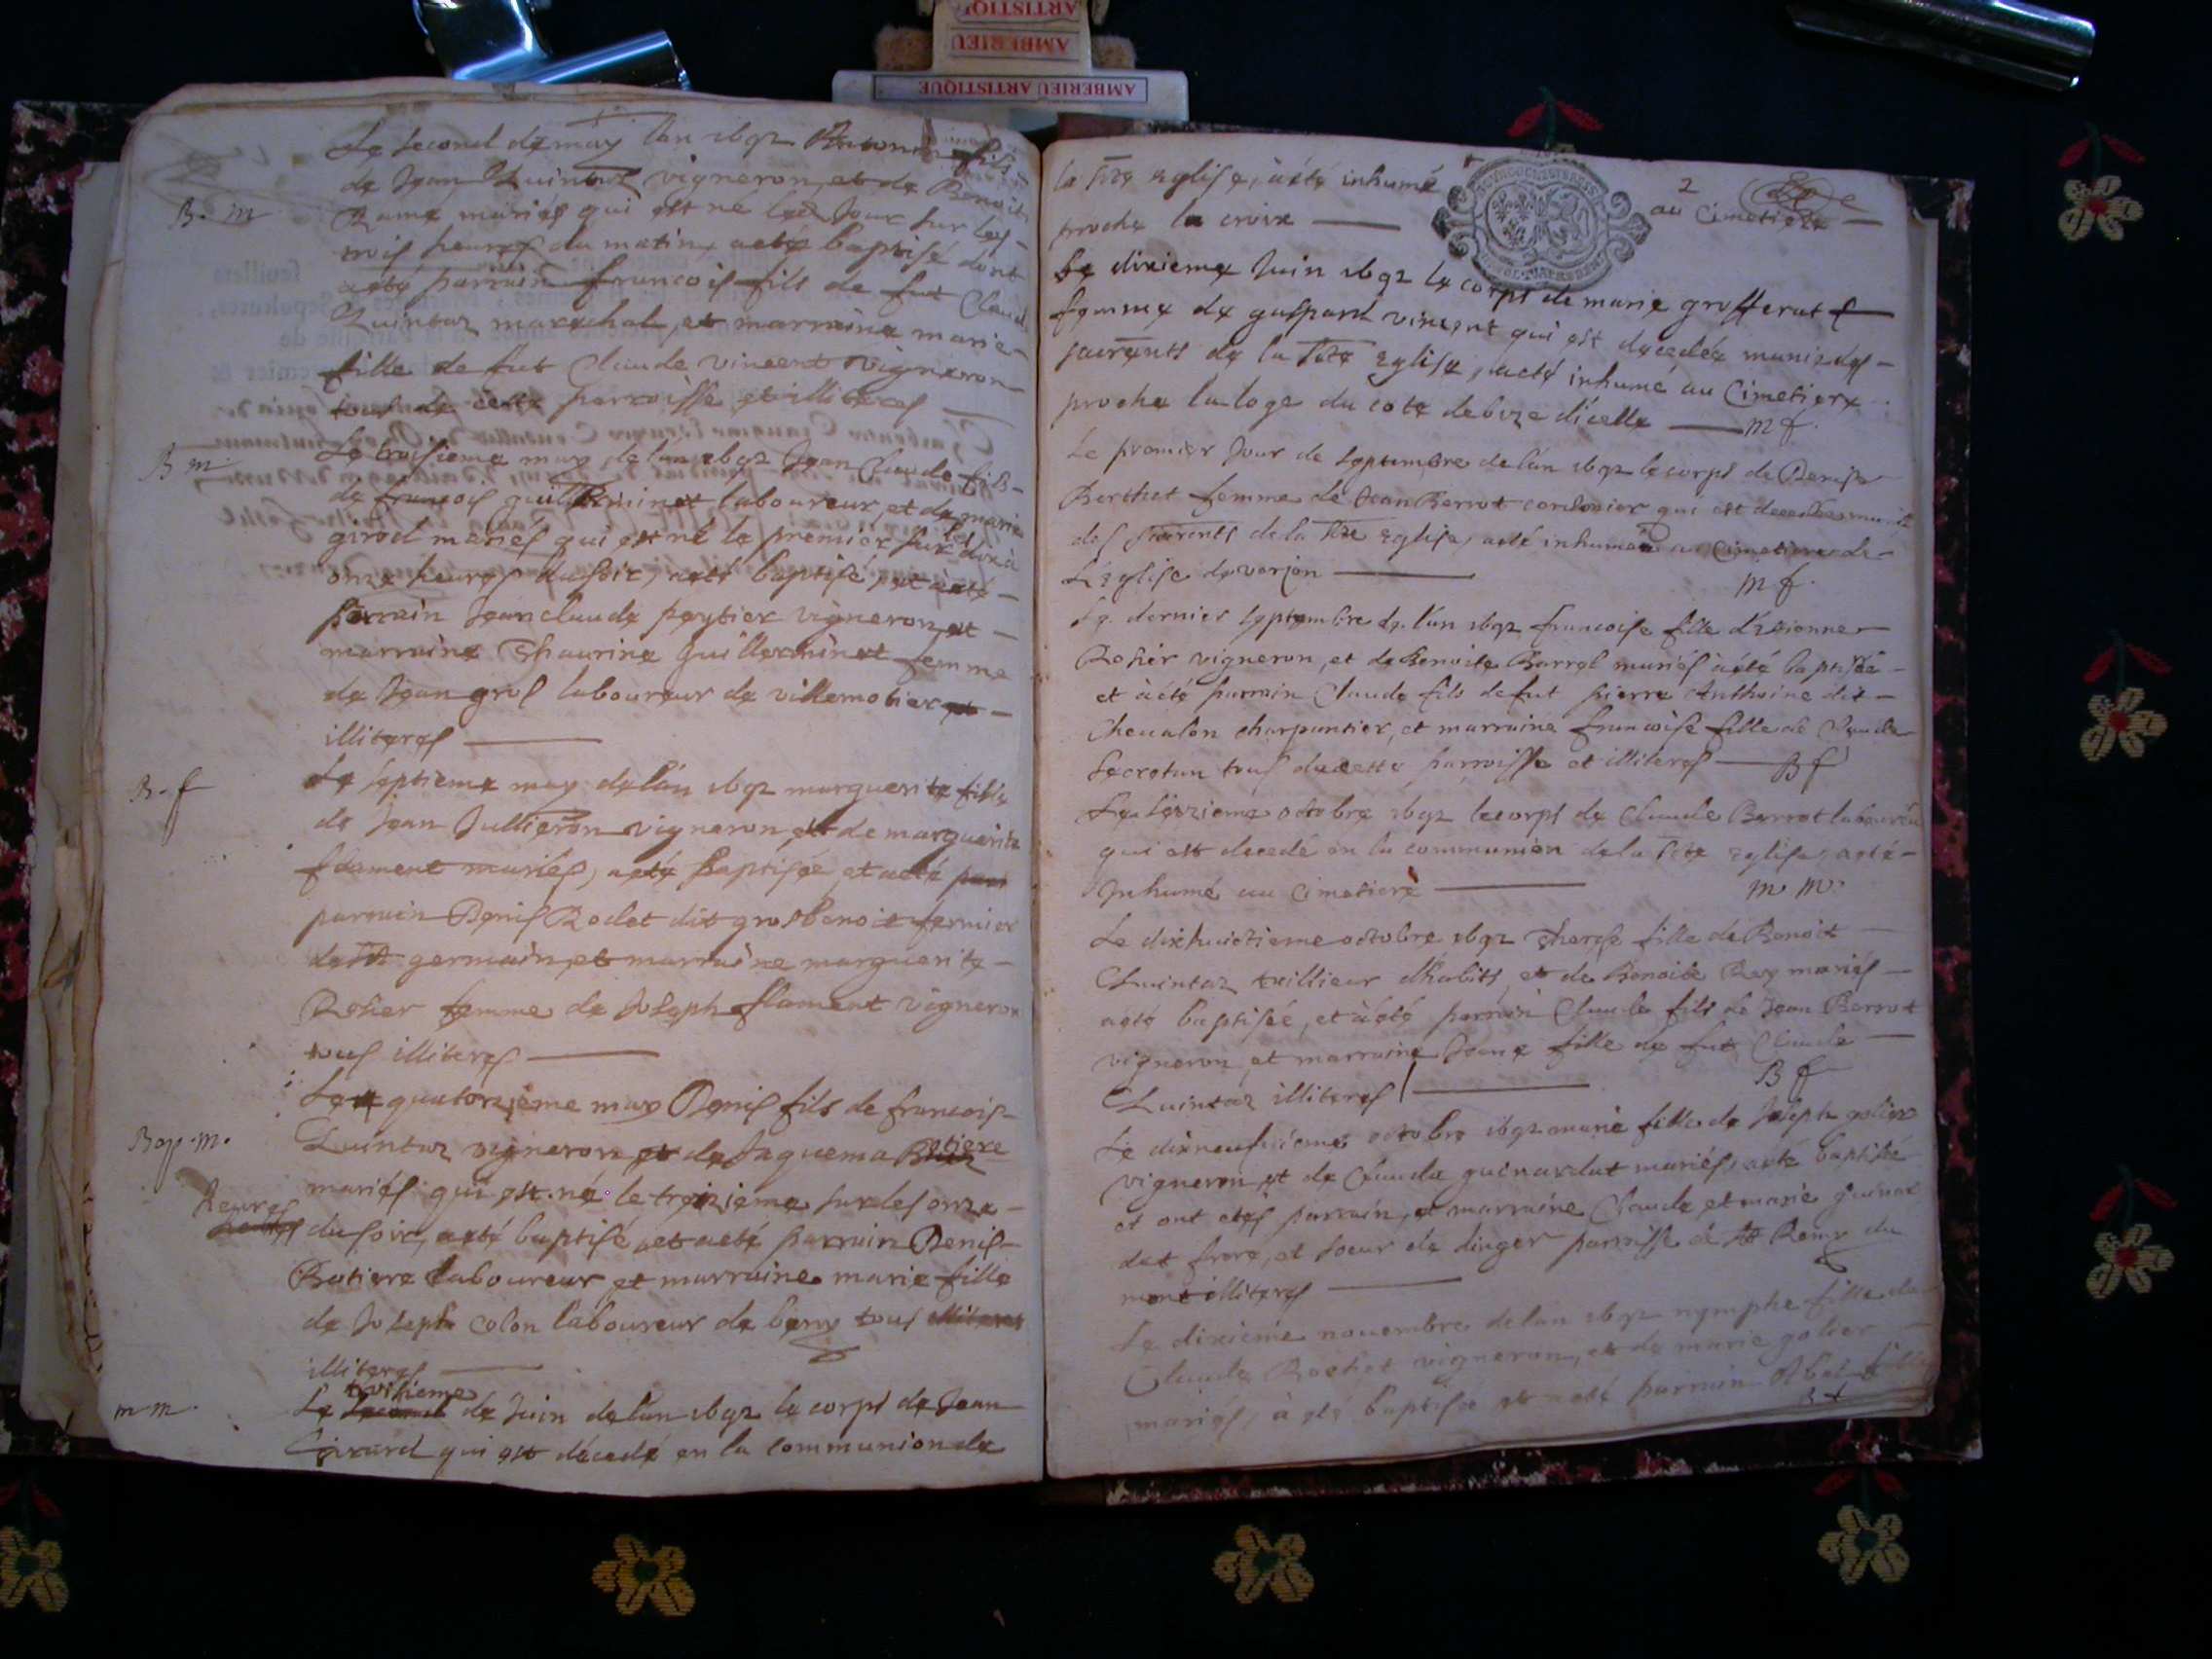 ARTISTIQUE
AMBERIEU
AMBERIEU ARTISTIQUE
Le second de may lan 1692 fils
de Jean Quintaz vigneron, et de Benoite
B. m
Rame mariés qui est né led Jour sur les
trois heures du matin, aeté baptisé dont
aeté parrain francois fils de fut Claude
Quintaz marechal, et marraine marie
fille de fut Claude vincent vigneron
tous de cette parroisse et illiteres
B m.
Le troisieme may de lan 1692 Jean Claude fils
de francois guillerminet laboureur, et de marie
girod mariés qui est né le premier sur les dix à
onze heures du soir, aeté baptisé, et àeté
parrain Jean claude peytier vigneron, et
marraine Thaurine Guillerminet femme
de Jean gros laboureur de villemotier et
illiteres
B. f
Le septieme may de lan 1692 marguerite fille
de Jean Jullieron vigneron, et de marguerite
flament mariés, aeté baptisée, et aeté
parrain Denis Rodet dit gros benoit fermier
de St germain, et marraine marguerite
Rosier femme de Joseph flament vigneron
tous illiteres
Le quatorzieme may Denis fils de francois
Bap. m.
Quintaz vigneron et de Jaquema Botiere
mariés qui est né le treizieme sur les onze
heures
heures du soir, aeté baptisé, et aeté parrain Denis
Botiere laboureur et marraine marie fille
de Joseph Colon laboureur de beny tous illiteres
illiteres
troisieme
m m.
Le second de Juin de lan 1692 le corps de Jean
Girard qui est décedé en la communion de
2
la Ste eglise, àeté inhumé au Cimetiere
proche la croix
Le dixieme Juin 1692 le corps de marie grosserat
femme de gaspard vincent qui est decedée munie des
sacrents de la Ste Eglise, aeté inhumé au Cimetiere
proche la loge du coté debize dicelle m f.
Le premier Jour de septembre de lán 1692 le corps de Denise
Berthet femme de Jean Berrot cordonier qui est decedée munie
des sacrents de la Ste eglise, aeté inhumée au Cimetiere de
L'eglise de verjon
m f.
Le dernier septembre de lan 1692 francoise fille d'Etienne
Rosier vigneron, et de Benoite Barrel mariés àeté baptisée
et àeté parrain Claude fils de fut pierre Anthoine dit
Chevalon charpentier, et marraine francoise fille de Claude
Secretan tous de cette parroisse et illiteres B f
Le seizieme octobre 1692 le corps de Claude Berrot laboureur
qui est decedé en la communion de la Ste Eglise, aeté
Inhumé au Cimetiere m m.
Le dixhuictieme octobre 1692 Therese fille de Benoit
Quintaz taillieur d'habits, et de Benoite Rey mariés
aeté baptisée, et àeté parrain Claude fils de Jean Berrot
vigneron, et marraine Jeane fille de fut Claude
Quintaz illiteres B f
Le dixneufvieme octobre 1692 marie fille de Joseph golier
vigneron et de Clauda guinardat mariés, aeté baptisée
et ont etés parrain, et marraine Claude et marie guinar
det frere, et soeur de dinger parroisse de St Remy du
mont illiteres
Le dixieme novembre de lan 1692 nymphe fille de
Claude Rochet vigneron, et de marie golier
mariés, à eté baptisée et aeté parrain
B f